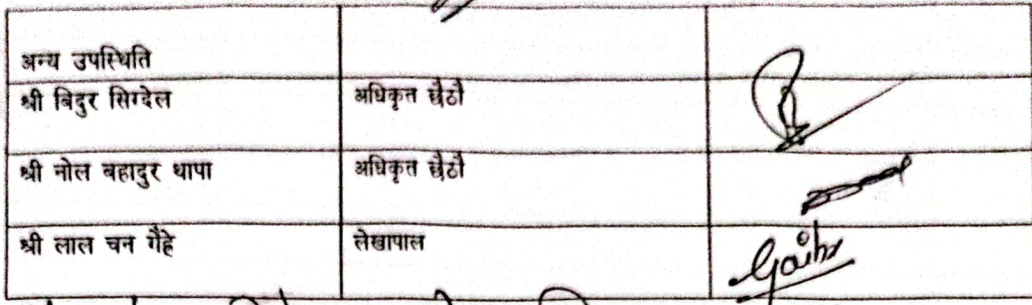 अन्य उपस्थिति
श्री बिदुर सिग्देल अधिकृत छैठौ
श्री नोल बहादुर थापा अधिकृत छैठौ
श्री लाल चन गैहे लेखापाल Gaihr